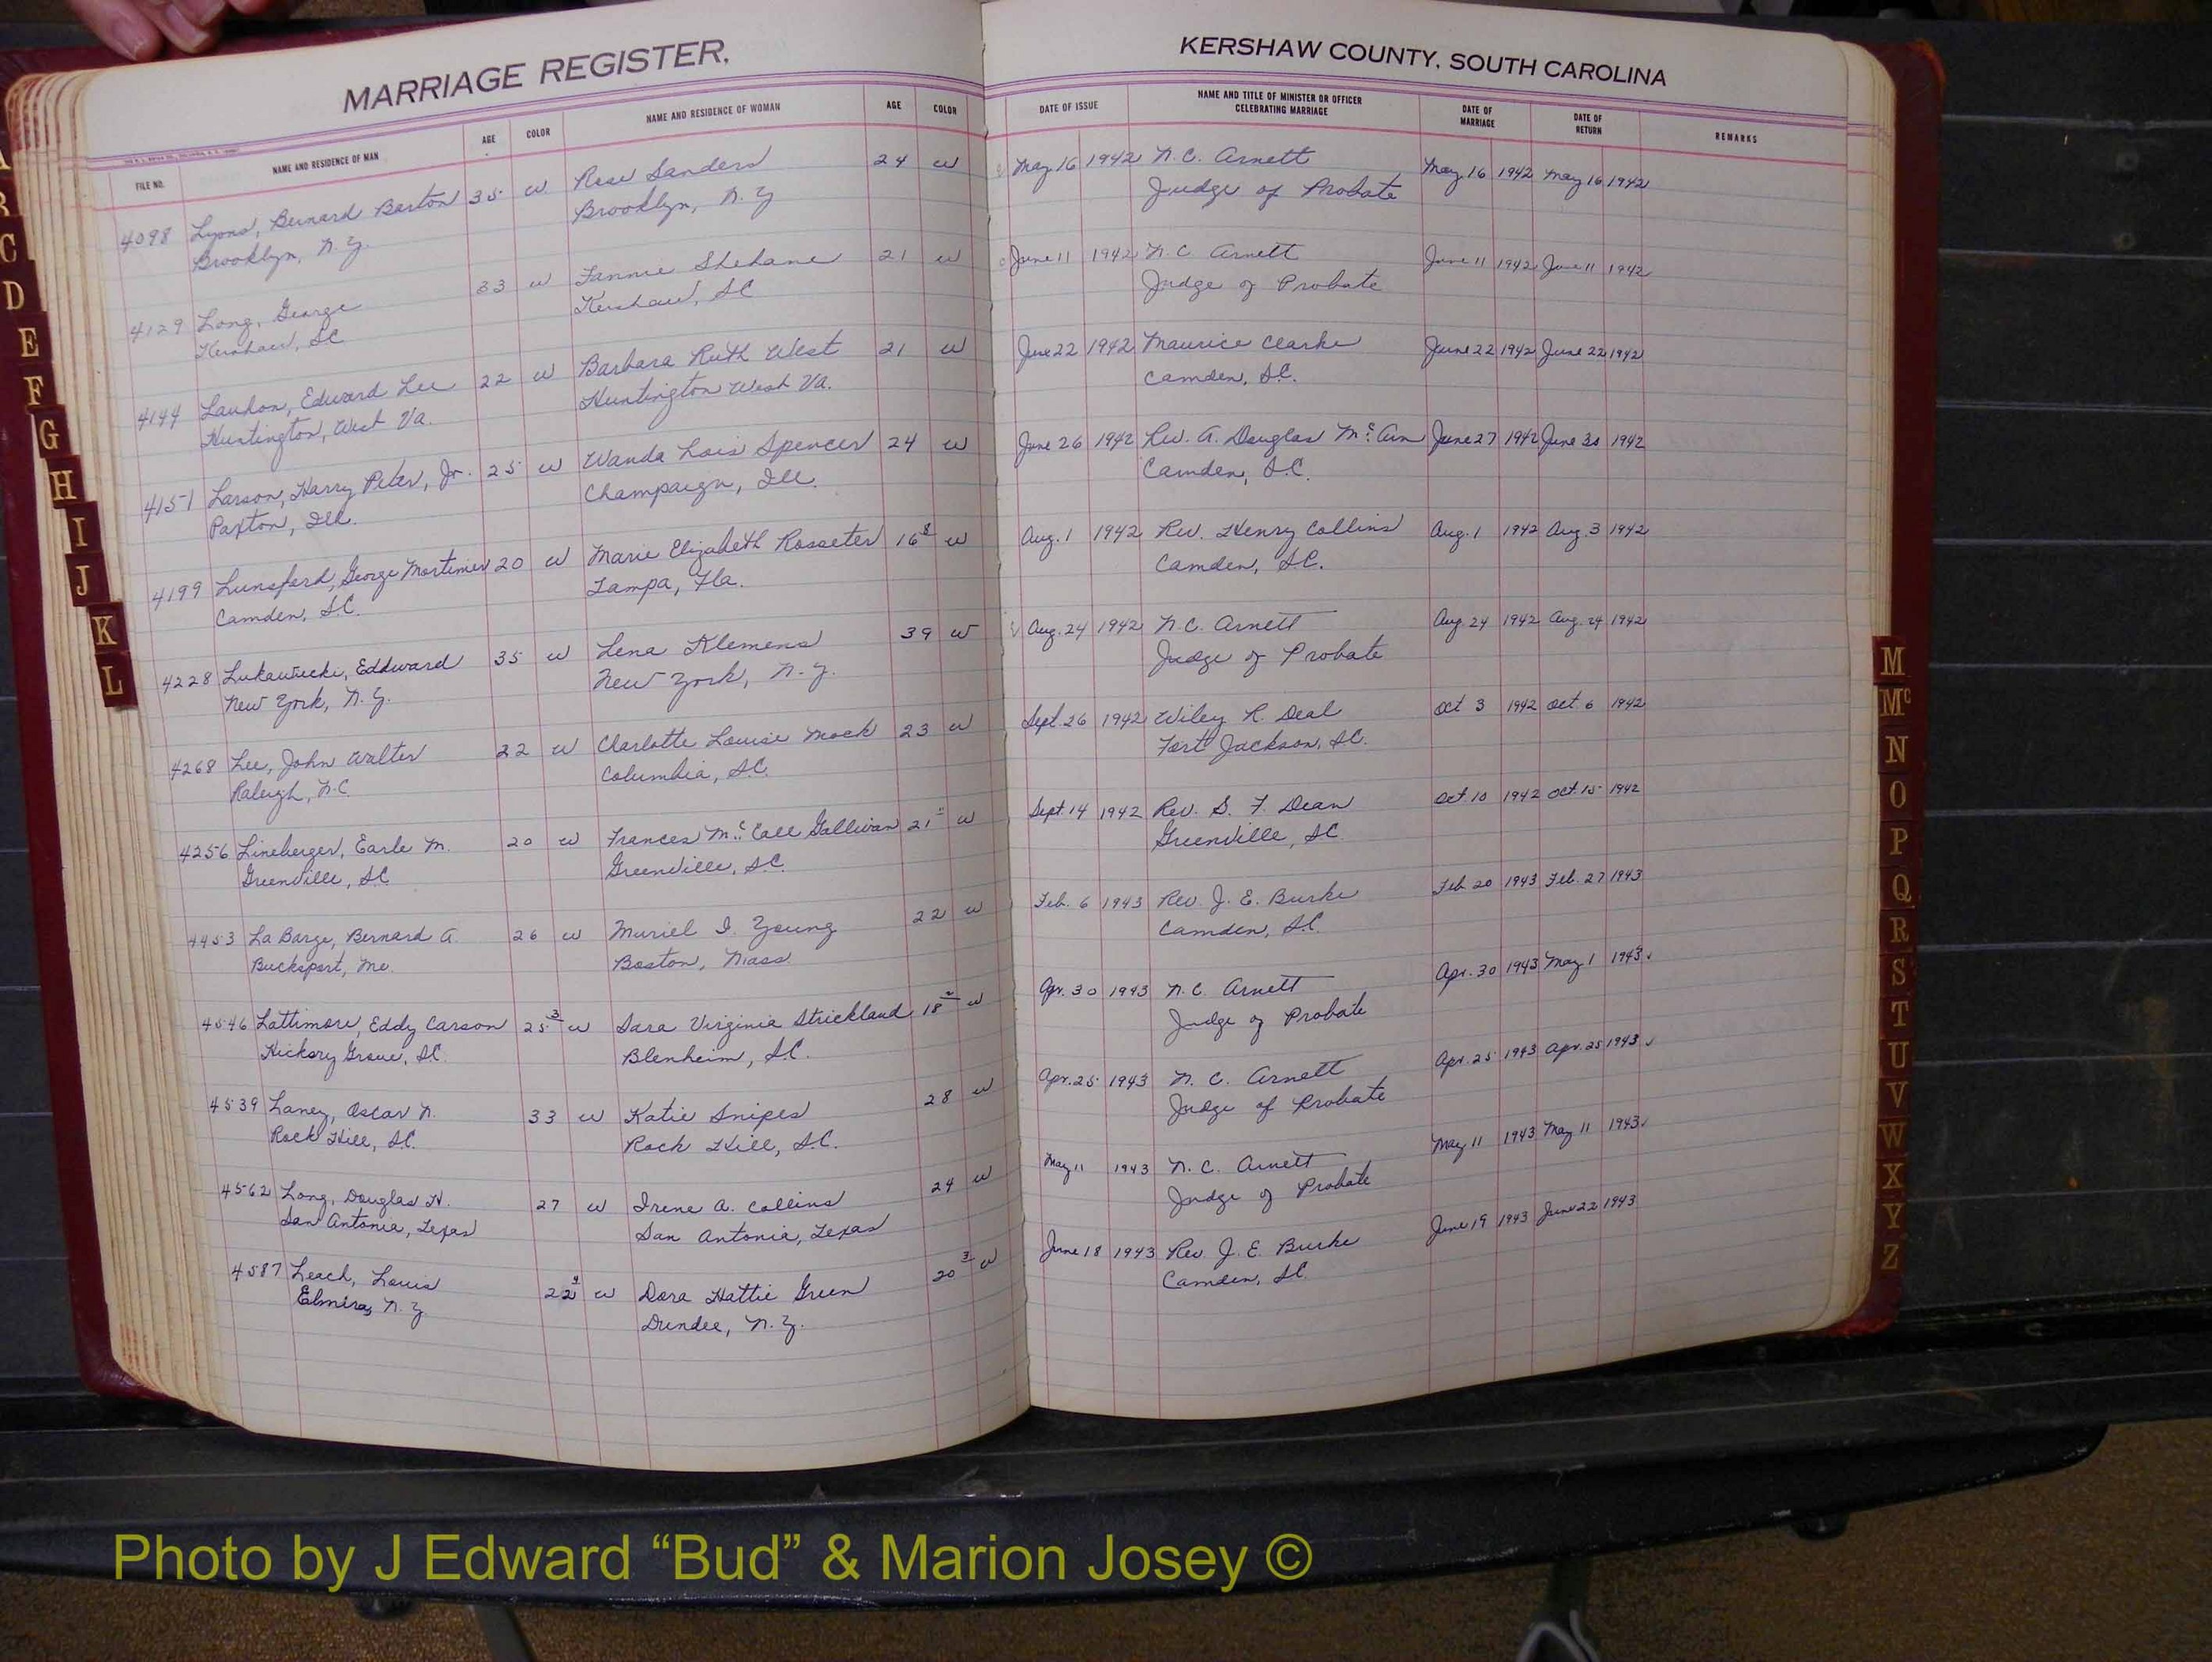 MARRIAGE REGISTER,
FILE NO. NAME AND RESIDENCE OF MAN AGE COLOR NAME AND RESIDENCE OF WOMAN AGE COLOR
4098 Lyons, Bernard Barton 35 W Rose Sanders 24 W
Brooklyn, N.Y. Brooklyn, N.Y
4129 Long, George 33 W Fannie Shehane 21 W
Kershaw, SC Kershaw, SC
4144 Edward Lee 22 W Barbara Ruth West 21 W
Huntington, West Va. Huntington West Va.
4151 Larson, Harry Peter, Jr. 25 W Wanda Lois Spencer 24 W
Paxton, Ill. Champaign, Ill.
4199 Lunsford, George Mortimer 20 W Marie Elizabeth Rosseter 16 8 W
Camden, S.C. Tampa, Fla.
4228 Eddward 35 W Lena Klemens 39 W
New York, N.Y. New York, N.Y.
4268 Lee, John Walter 22 W Charlotte Louise Mock 23 W
Raleigh, N.C Columbia, S.C.
4256 Lineberger, Earle M. 20 W Frances McCall Gallivan 21 W
Greenville, S.C Greenville, S.C.
4453 La Barge, Bernard A. 26 W Muriel I. Young 22 W
Bucksport, Me. Boston, Mass
4546 Lattimore, Eddy Carson 25 3 W Sara Virginia Strickland 18 W
Hickory Grove, S.C. Blenheim, S.C.
4539 Laney, Oscar N. 33 W Katie Snipes 28 W
Rock Hill, S.C. Rock Hill, S.C.
4562 Long, Douglas H. 27 W Irene A. Collins 24 W
San Antonia, Texas San Antonia, Texas
4587 Leach, Louis 22 W Dora Hattie Green 20 3 W
Elmira, N.Y Dundee, N.Y.
KERSHAW COUNTY, SOUTH CAROLINA
DATE OF ISSUE NAME AND TITLE OF MINISTER OR OFFICER CELEBRATING MARRIAGE DATE OF MARRIAGE DATE OF RETURN REMARKS
May 16 1942 N.C. Arnett May 16 1942 May 16 1942
Judge of Probate
June 11 1942 N.C. Arnett June 11 1942 June 11 1942
Judge of Probate
June 22 1942 Maurice Clarke June 22 1942 June 22 1942
Camden, S.C.
June 26 1942 Rev. A. Douglas June 27 1942 June 30 1942
Camden, S.C.
Aug. 1 1942 Rev. Henry Collins Aug. 1 1942 Aug 3 1942
Camden, S.C.
Aug. 24 1942 N.C. Arnett Aug. 24 1942 Aug. 24 1942
Judge of Probate
Sept. 26 1942 Wiley R. Deal Oct 3 1942 Oct. 6 1942
Fort Jackson, S.C.
Sept. 14 1942 Rev. S. F. Dean Oct. 10 1942 Oct. 15 1942
Greenville, S.C
Feb. 6 1943 Rev. J. E. Burke Feb. 20 1943 Feb. 27 1943
Camden, S.C.
Apr. 30 1943 N.C. Arnett Apr. 30 1943 May 1 1943
Judge of Probate
Apr. 25 1943 N. C. Arnett Apr. 25 1943 Apr. 25 1943
Judge of Probate
May 11 1943 N. C. Arnett May 11 1943 May 11 1943
Judge of Probate
June 18 1943 Rev. J. E. Burke June 19 1943 June 22 1943
Camden, S.C.
A
B
C
D
E
F
G
H
I
J
K
L
M
Mc
N
O
P
Q
R
S
T
U
V
W
X
Y
Z
Photo by J Edward “Bud” & Marion Josey ©